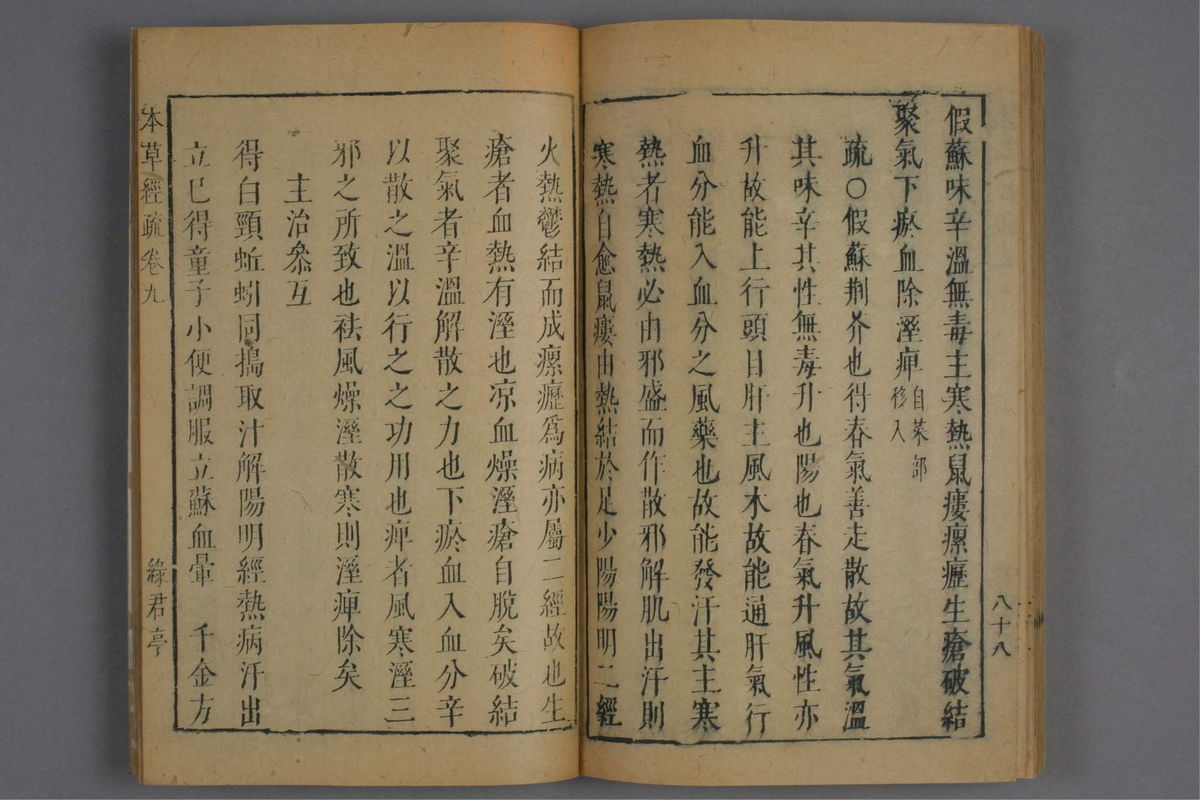 假蘇味辛溫無毒主寒熱鼠瘻瘰癧生瘡破結
聚氣下瘀血除溼痺自菜部移入
疏○假蘇荆芥也得春氣善走散故其氣溫
其味辛其性無毒升也陽也春氣升風性亦
升故能上行頭目肝主風木故能通肝氣行
血分能入血分之風藥也故能發汗其主寒
熱者寒熱必由邪盛而作散邪解肌出汗則
寒熱自愈鼠瘻由熱結於足少陽陽明二經
八十八
火熱鬱結而成瘰癧爲病亦屬二經故也生
瘡者血熱有溼也凉血燥溼瘡自脫矣破結
聚氣者辛溫解散之力也下瘀血入血分辛
以散之溫以行之之功用也痺者風寒溼三
邪之所致也祛風燥溼散寒則溼痺除矣
主治叅互
得白頸蚯蚓同搗取汁解陽明經熱病汗出
立巳得童子小便調服立蘇血暈 千金方
本草經疏卷九
綠君亭